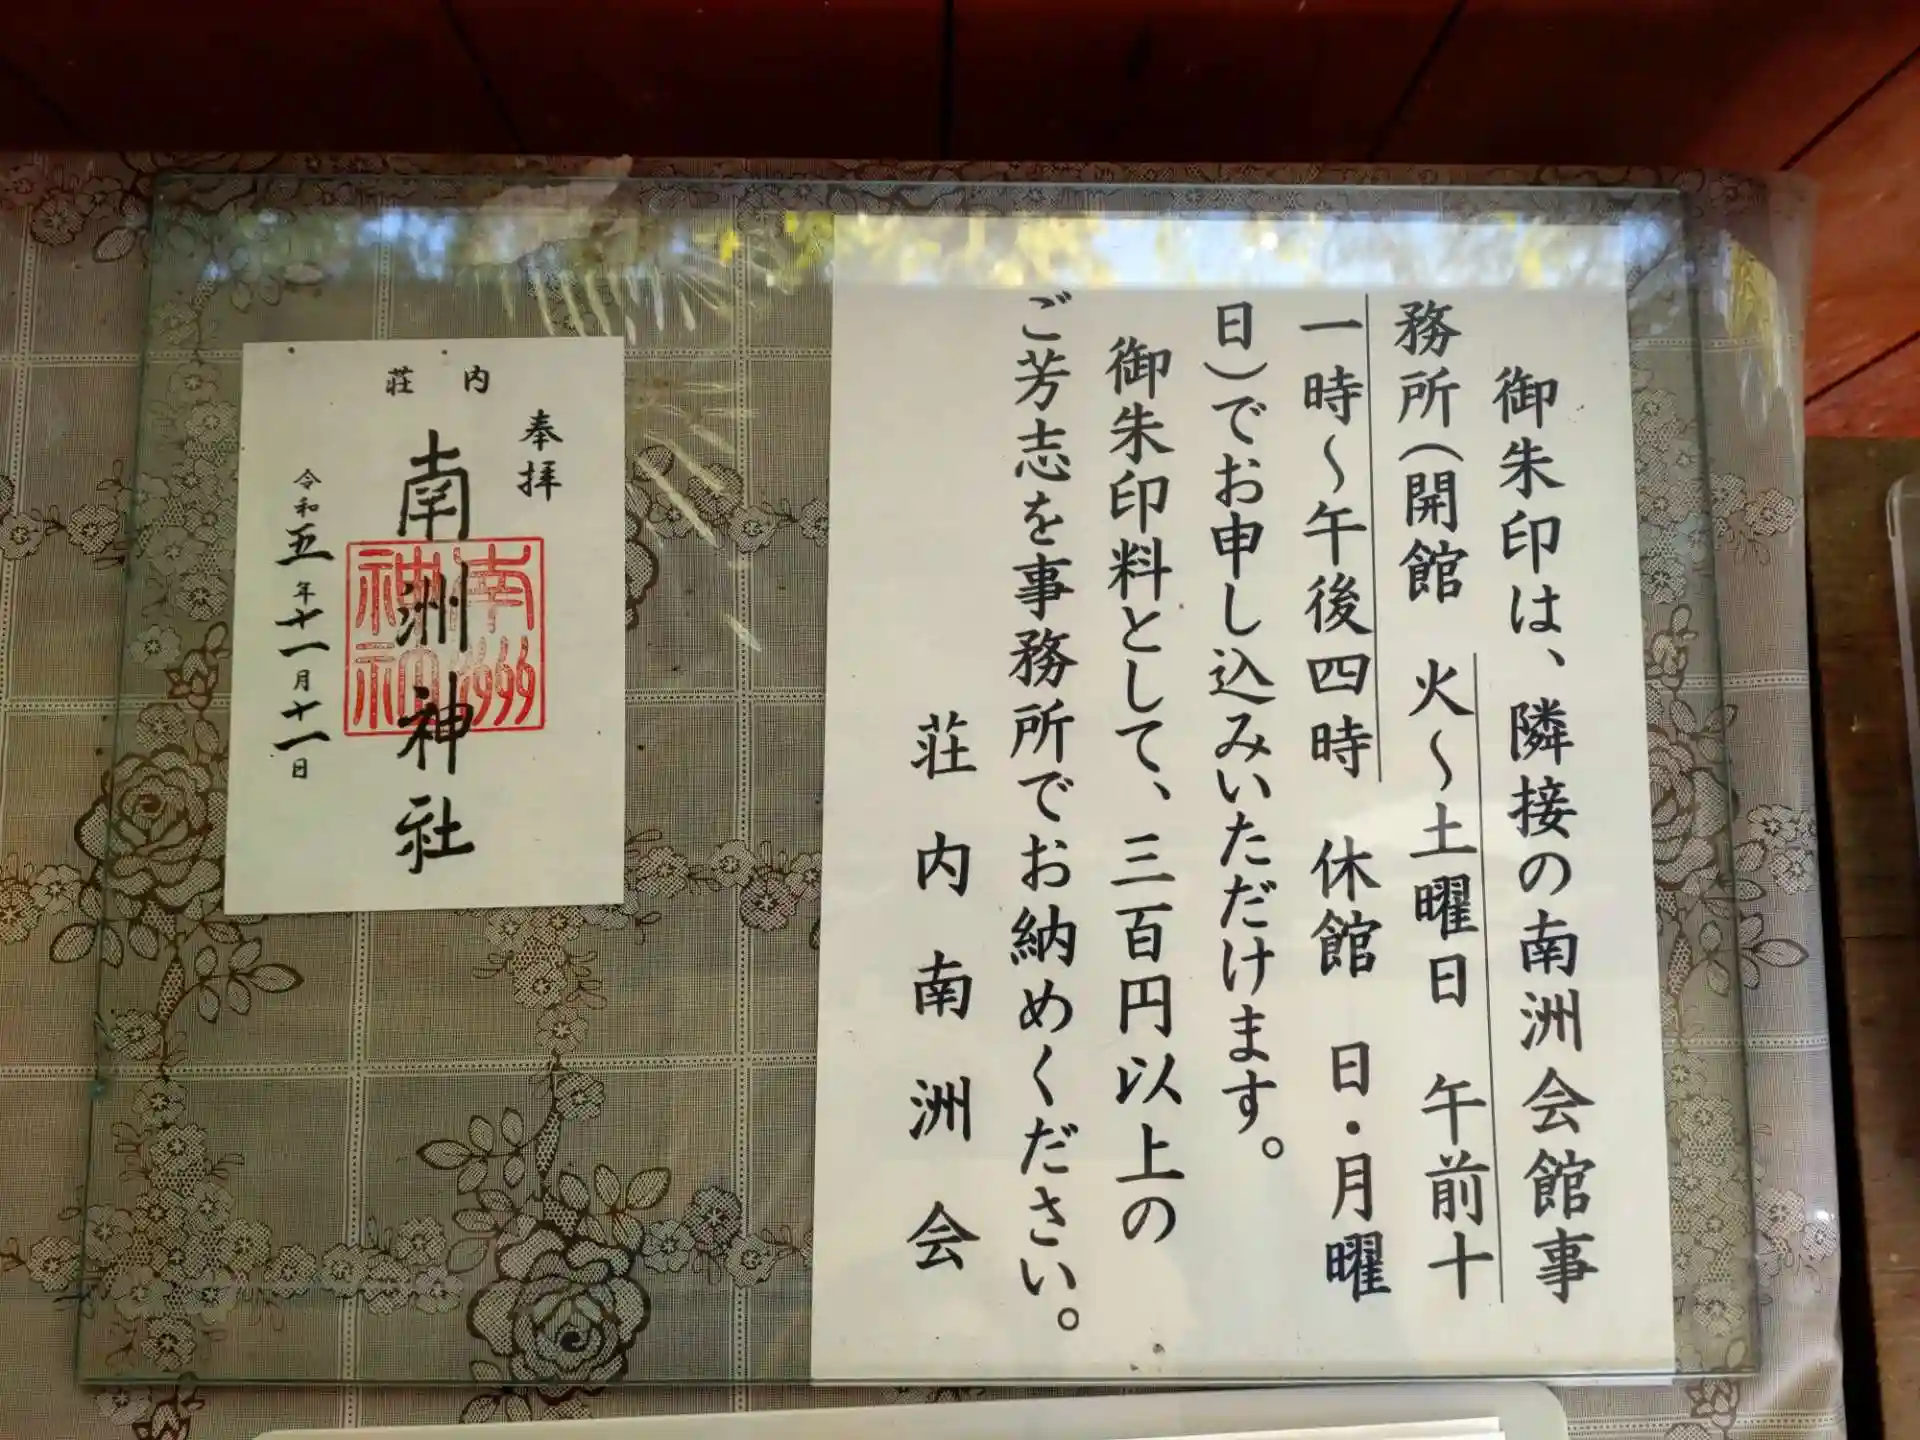 御朱印は、隣接の南洲会館事
務所(開館 火~土曜日 午前十
一時~午後四時 休館 日・月曜
日)でお申し込みいただけます。
御朱印料として、三百円以上の
ご芳志を事務所でお納めください。
荘内南洲会
奉拝
内荘
南洲神社
南洲神社
令和五年十一月十一日